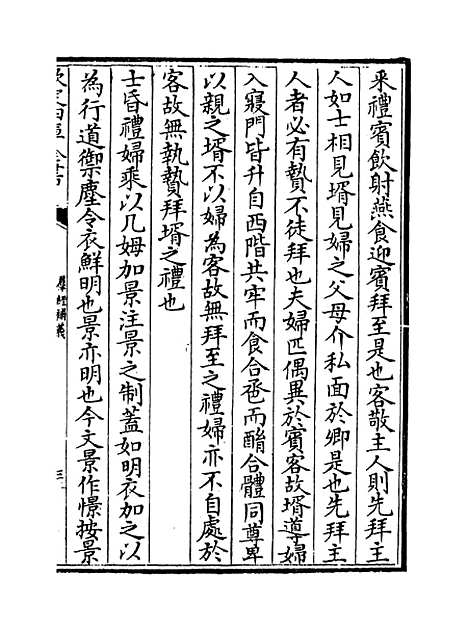 采禮賓飲射燕食迎賓拜至是也客敬主人則先拜主
人如士相見壻見婦之父母介私面於卿是也先拜主
人者必有贄不徒拜也夫婦匹偶異於賓客故壻導婦
入寢門皆升自西階共牢而食合卺而酳合體同尊卑
以親之壻不以婦為客故無拜至之禮婦亦不自處於
客故無執贄拜壻之禮也
士昏禮婦乘以几姆加景注景之制蓋如明衣加之以
為行道禦塵令衣鮮明也景亦明也今文景作憬按景
欽定四庫全書
羣經補義
三